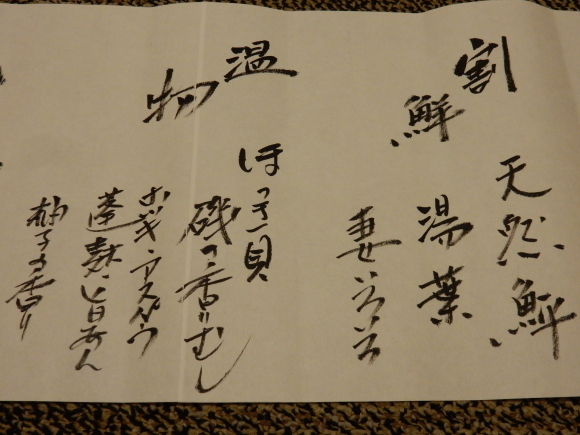 割鮮
天然鮮
湯葉
妻いろいろ
温物
ほっき貝
磯の香りむし
アスパラ
蓬麩
柚子の香り